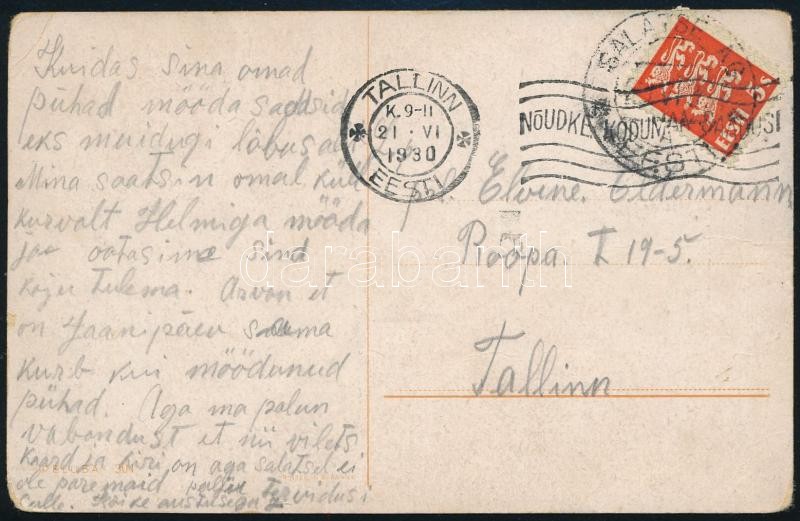 Kuidas sina omad
pühad mööda saatsid
eks muidugi lõbusa
Mina saatsin omal kui
kurvalt Helmiga mööda
ja ootasime sind
koju tulema. Arvan et
on Jaanipäev sama
kurb kui möödunud
pühad. Aga ma palun
vabandust et nii vilets
kaard ja kiri on aga salatsel ei
ole paremaid palju tervidusi
Sulle. Kõike austusega
TALLINN
K. 9-11
21 · VI
1930
EESTI
NÕUDKE KODUMAA
EESTI
EESTI
5 S
Elvine
Roopa. T 19-5.
Tallinn
darabanth